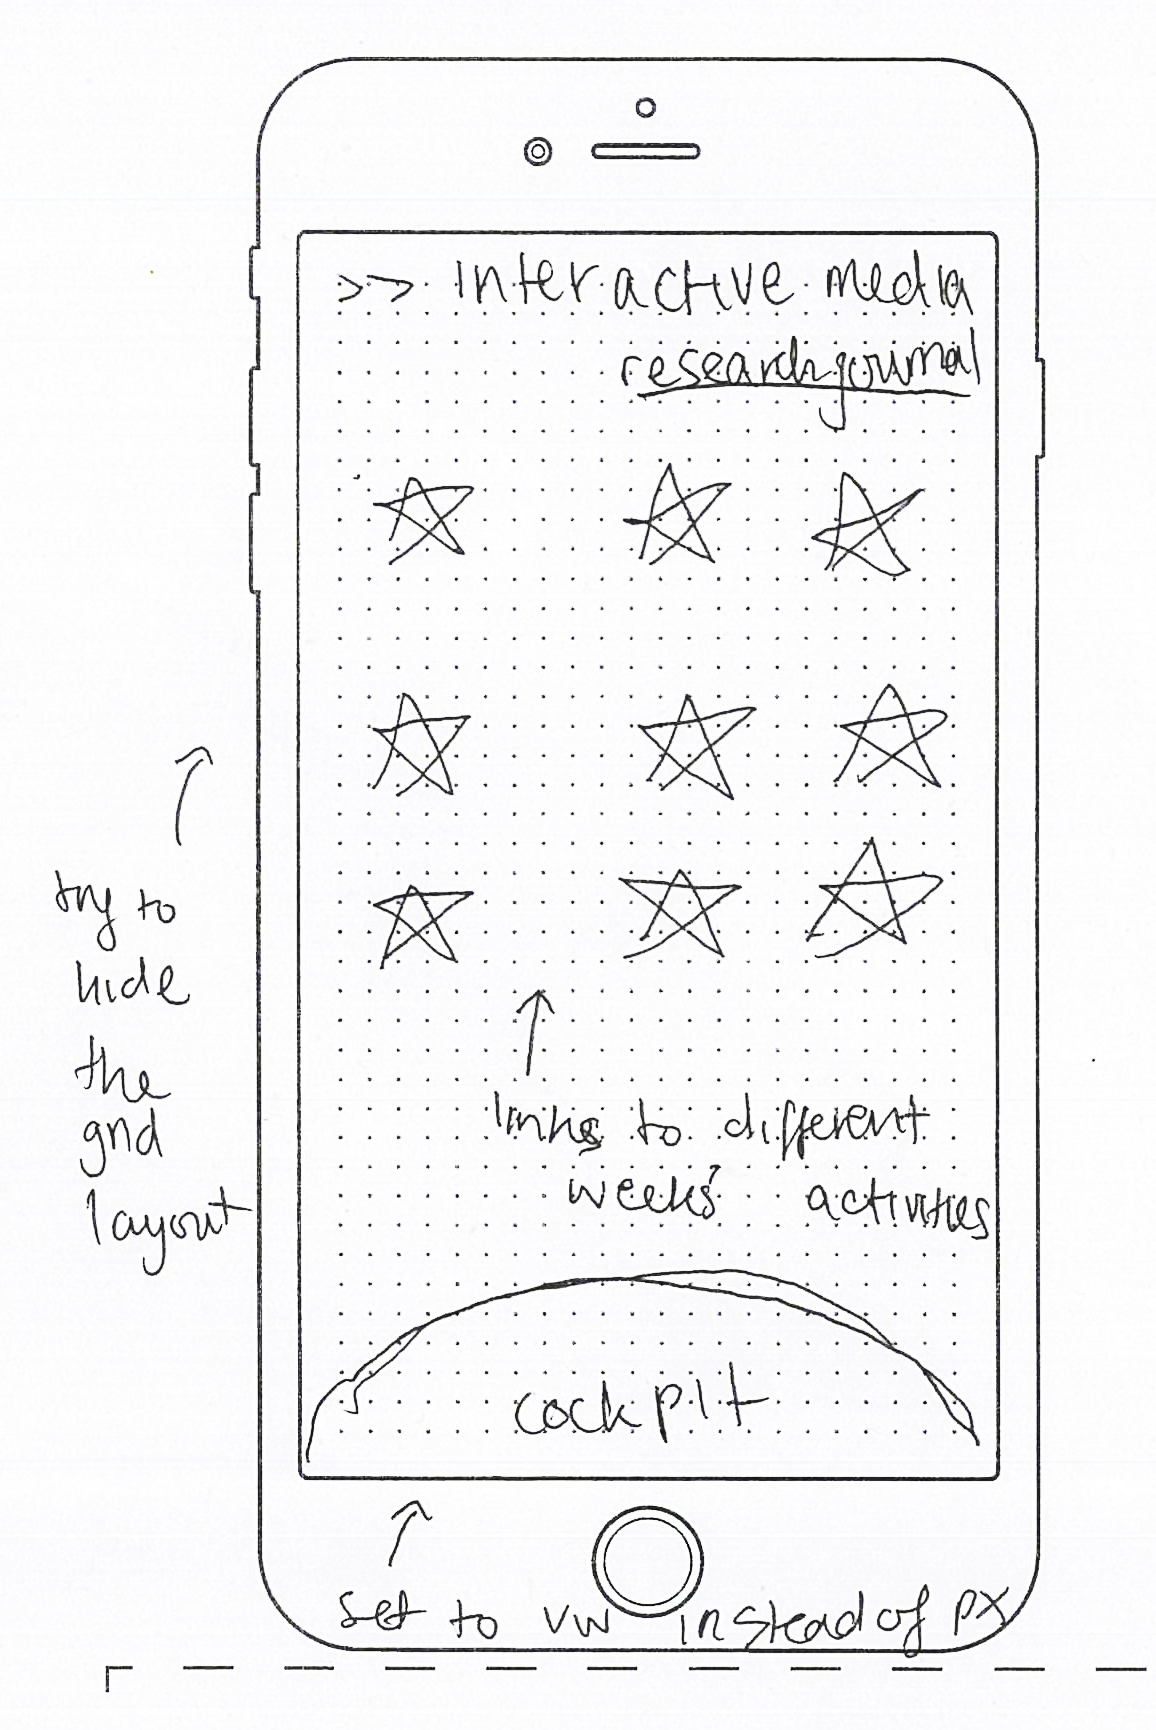 >> interactive media
research journal
try to
hide
the
grid
layout
links to different
weeks' activities
cockpit
set to vw instead of px